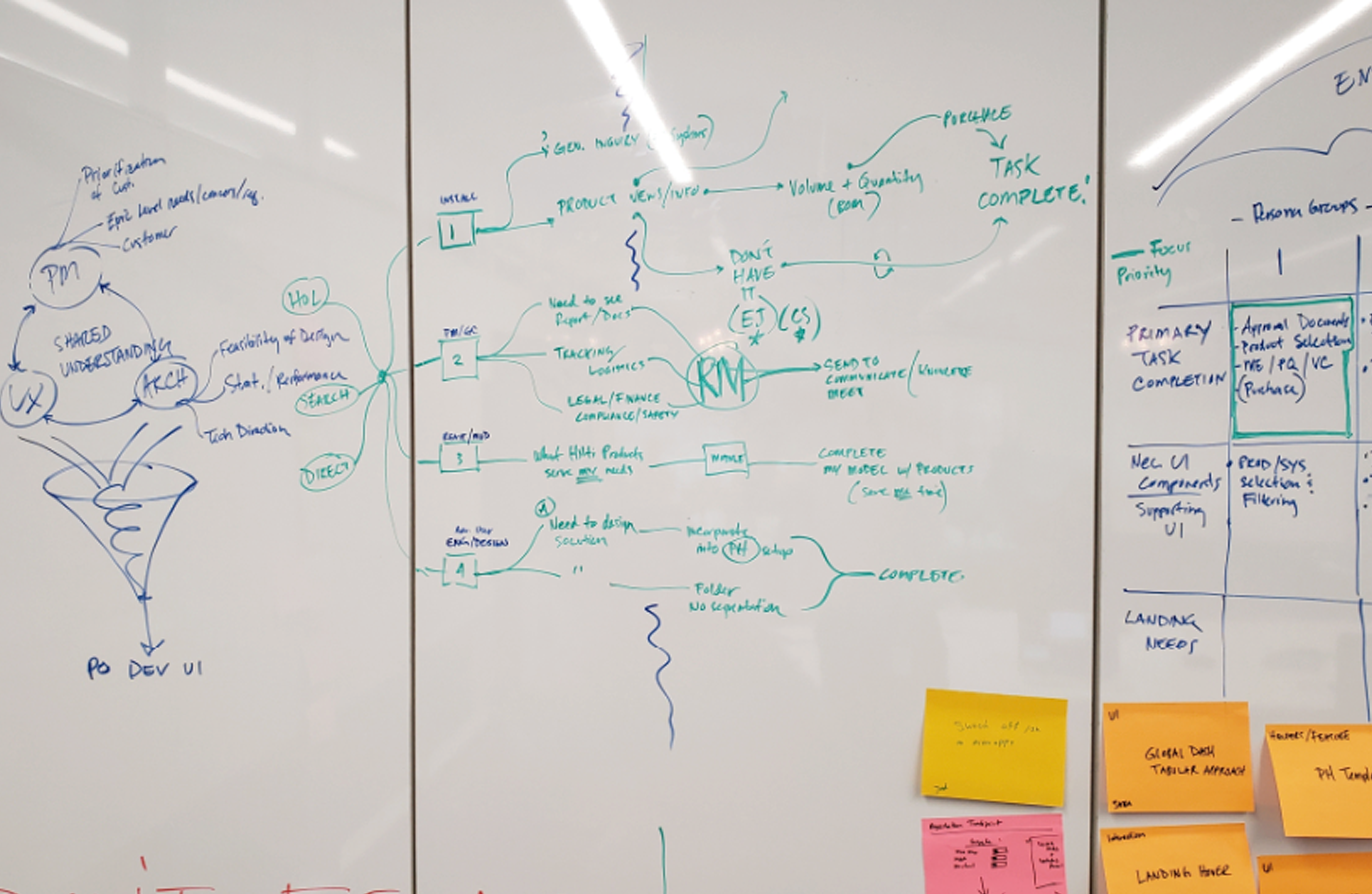 Prioritization
of Cust.
Epic level needs/concerns/req.
Customer
PM
SHARED
UNDERSTANDING
UX
ARCH
Feasibility of Design
Strat./Performance
Tech Direction
PO DEV UI
HOL
SEARCH
DIRECT
INSTALL
1
GEN. INQUIRY
PRODUCT NEWS/INFO
Volume + Quantity
(BOM)
PURCHACE
TASK
COMPLETE!
DON'T
HAVE
IT
(EJ) (CS)
* *
TM/GC
2
Need to see
Report/Docs
TRACKING/
LOGISTICS
LEGAL/FINANCE
COMPLIANCE/SAFETY
RM
SEND TO
COMMUNICATE/
MEET
3
What Hilti Products
serve my needs
COMPLETE
MY MODEL W/ PRODUCTS
(save me time)
ENG/DESIGN
4
A
Need to design
solution
incorporate
into PH setup
"
Folder
No segmentation
COMPLETE
EN
- Persona Groups -
Focus
Priority
1
PRIMARY
TASK
COMPLETION
- Approval Documents
- Product Selection
- PE / PQ / VC
- (Purchace)
Nec. UI
Components
Supporting
UI
PROD/SYS
Selection &
Filtering
LANDING
NEEDS
UI
GLOBAL DASH
TABULAR APPROACH
HELPERS/FEATURE
PH Templ
Interaction
LANDING HOVER
UI